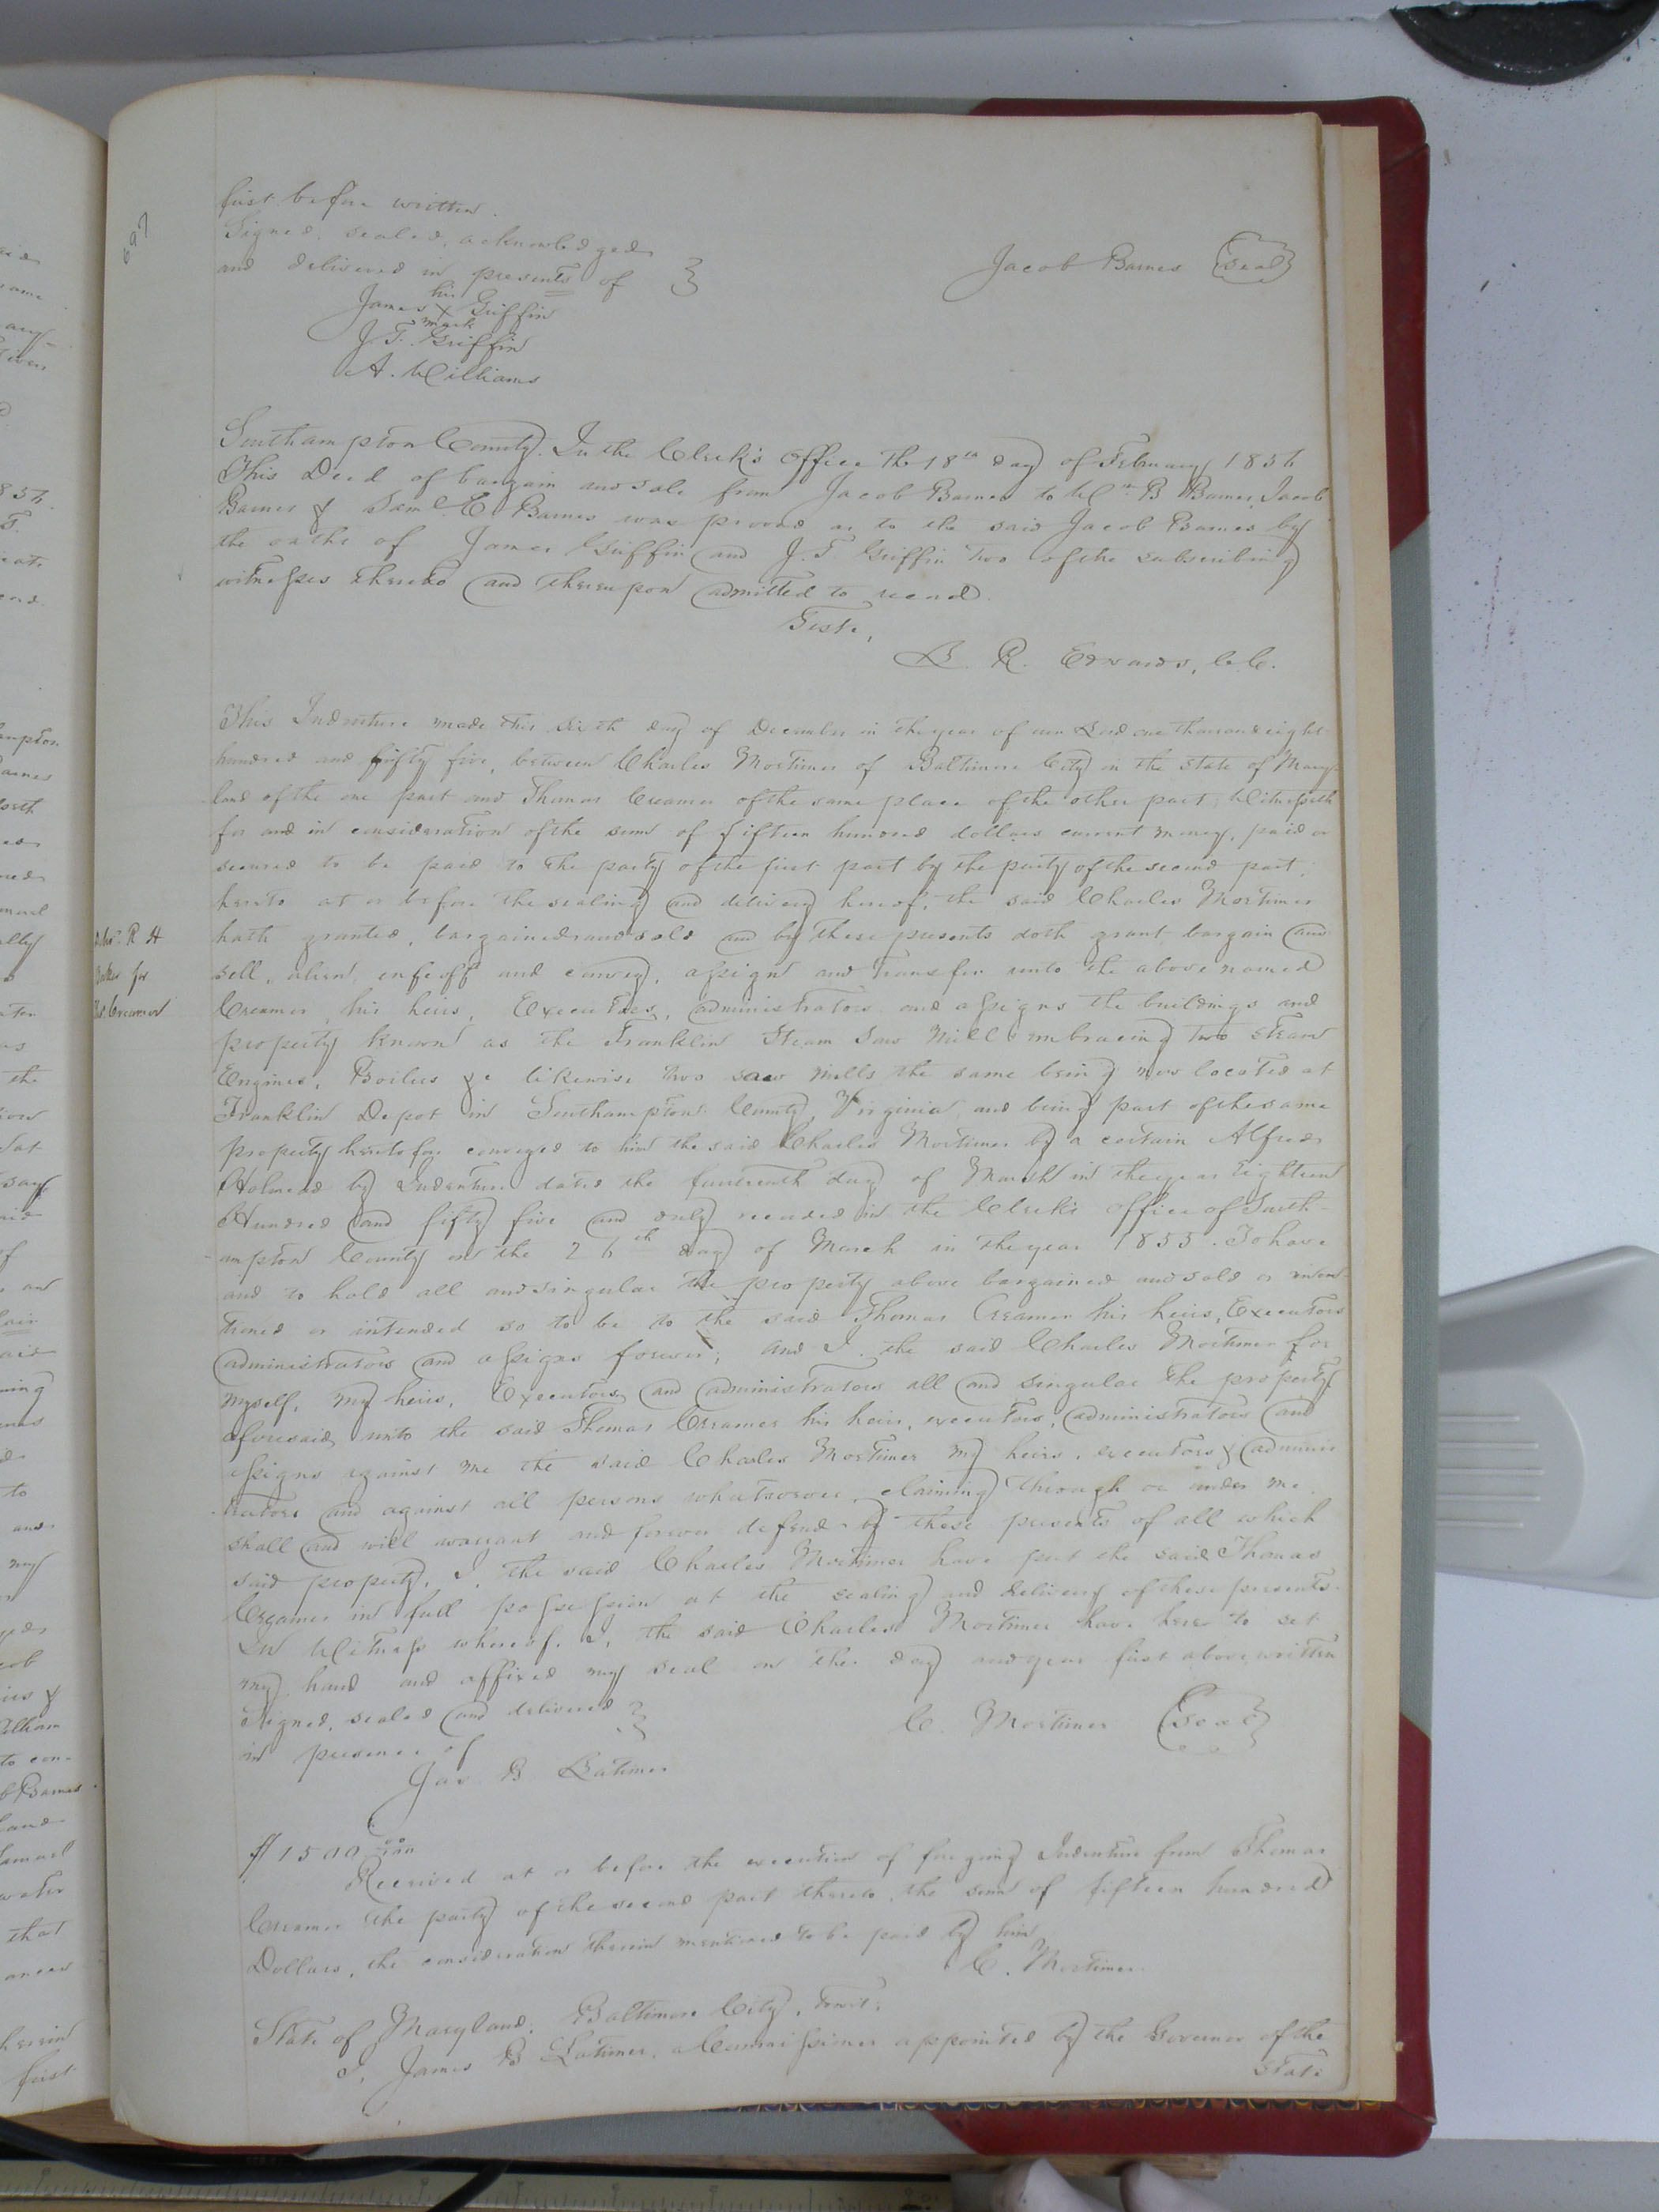 697
first before written.
Signed, sealed, acknowledged
and delivered in presents of
Jacob Barnes (Seal)
his
James X Griffin
mark
J. T. Griffin
A. Williams
Southampton County. In the Clerk's Office the 18th day of February 1856
This Deed of bargain and sale from Jacob Barnes to Wm B Barnes, Jacob
Barnes & Saml. E. Barnes was proved as to the said Jacob Barnes by
the oaths of James Griffin and J. T Griffin two of the subscribing
witnesses thereto and thereupon admitted to record.
Teste,
L. R. Edwards, C.C.
This Indenture made this sixth day of December in the year of our Lord one thousand eight
hundred and fifty five, between Charles Mortimer of Baltimore City in the State of Mary-
land of the one part and Thomas Creamer of the same place of the other part, Witnesseth
for and in consideration of the sum of fifteen hundred dollars current money, paid or
secured to be paid to the party of the first part by the party of the second part,
hereto at or before the sealing and delivery hereof, the said Charles Mortimer
hath granted, bargained and sold and by these presents doth grant, bargain and
sell, alien, enfeoff and convey, assign and transfer unto the above named
Creamer, his heirs, Executors, administrators and assigns the buildings and
property known as the Franklin Steam Saw Mill embracing two steam
Engines, Boilers &c likewise two saw mills the same being now located at
Franklin Depot in Southampton County, Virginia, and being part of the same
property heretofore conveyed to him the said Charles Mortimer by a certain Alfred
Holmead by Indenture dated the fourteenth day of March in the year Eighteen
Hundred and fifty five and duly recorded in the Clerk's Office of South-
ampton County on the 26th day of March in the year 1855. To have
and to hold all and singular the property above bargained and sold or men-
tioned or intended so to be to the said Thomas Creamer his heirs, Executors
administrators and assigns forever; and I. the said Charles Mortimer for
myself, my heirs, Executors and administrators all and singular the property
aforesaid unto the said Thomas Creamer his heirs, executors, administrators and
assigns against me the said Charles Mortimer my heirs, executors & adminis
trators and against all persons whatsoever, claiming through or under me.
shall and will warrant and forever defend by these presents of all which
said property, I, the said Charles Mortimer have put the said Thomas
Creamer in full possession at the sealing and delivery of these presents.
In Witness whereof. I, the said Charles Mortimer have here to set
my hand and affixed my seal on the day and year first above written
Signed, sealed and delivered
in presence of
C. Mortimer (Seal)
Jas B. Latimer
$1500 00/100
Received at or before the execution of foregoing Indenture from Thomas
Creamer the party of the second part thereto, the sum of fifteen hundred
Dollars, the consideration therein mentioned to be paid by him
C. Mortimer
State of Maryland. Baltimore City, towit:
I, James B Latimer, a Commissioner appointed by the Governor of the
State